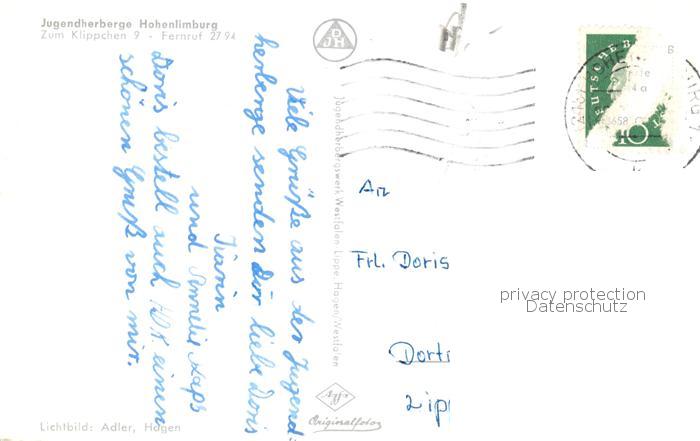 Jugendherberge Hohenlimburg
Zum Klippchen 9 - Fernruf 27 94
Viele Grüße aus der Jugend-
herberge senden Dir liebe Doris
Karin
und Annelie Kaps
Doris bestell auch einen
schönen Gruß von mir.
Lichtbild: Adler, Hagen
DJH
Jugendherbergswerk Westfalen-Lippe, Hagen/Westfalen
Agfa
Originalfotos
DEUTSCHE B
10
An
Frl. Doris
Dort
Lip
privacy protection
Datenschutz